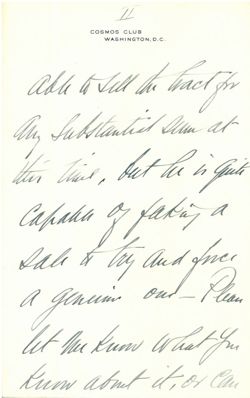 II
COSMOS CLUB
WASHINGTON, D.C.
able to sell the tract for
any substantial sum at
this time, but he is quite
capable of faking a
sale to try and force
a genuine one – Please
let me know what you
know about it, or can